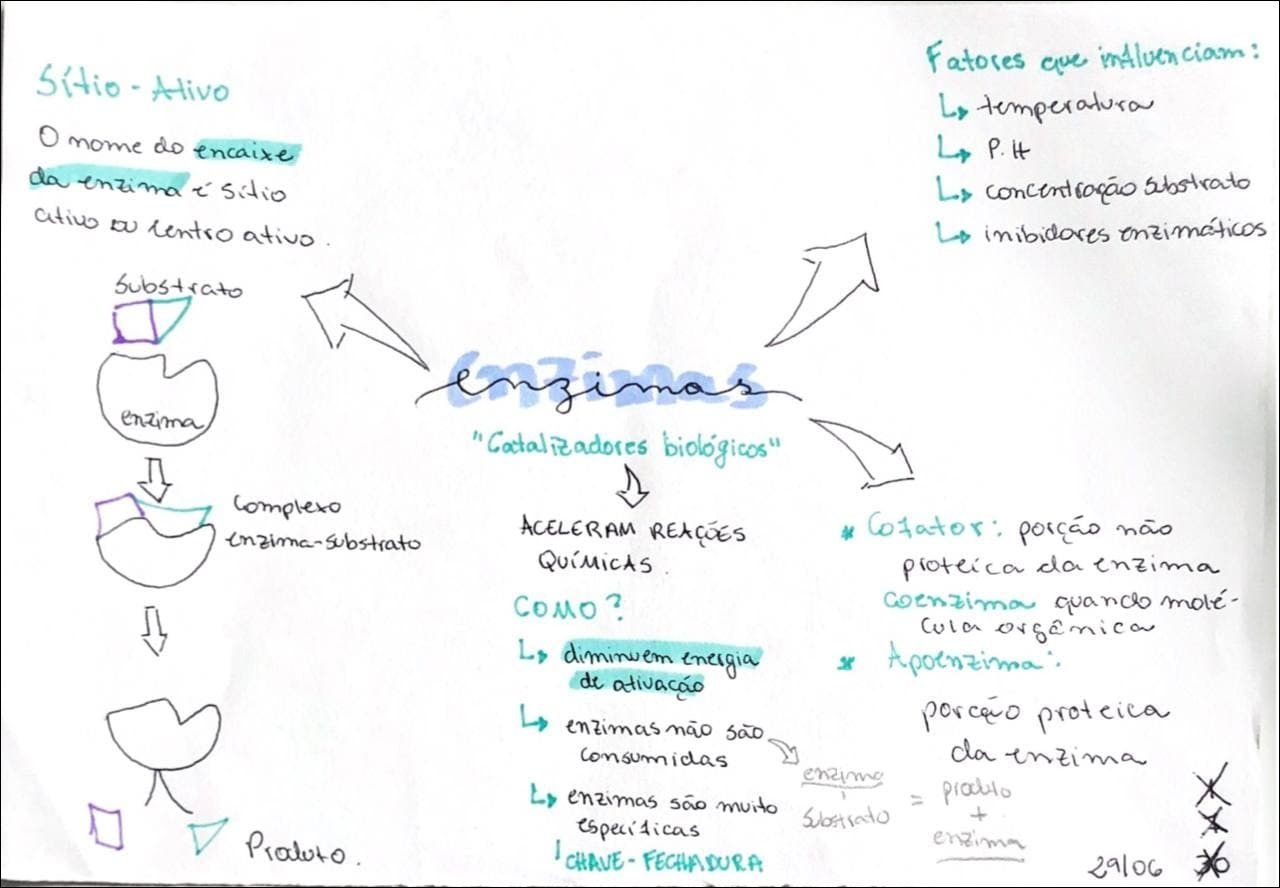 Sítio - Ativo
O nome do encaixe
da enzima é sítio
ativo ou centro ativo.
Substrato
enzima
Complexo
enzima-substrato
Produto.
enzimas
enzimas
"Catalizadores biológicos"
ACELERAM REAÇÕES
QUÍMICAS.
COMO?
↳ diminuem energia
de ativação
↳ enzimas não são
consumidas
↳ enzimas são muito
específicas
CHAVE - FECHADURA
enzima
+
substrato
=
produto
+
enzima
Fatores que influenciam:
↳ temperatura
↳ P.H
↳ concentração substrato
↳ inibidores enzimáticos
* Cofator: porção não
proteica da enzima
coenzima quando molé-
cula orgânica
* Apoenzima:
porção proteica
da enzima
29/06